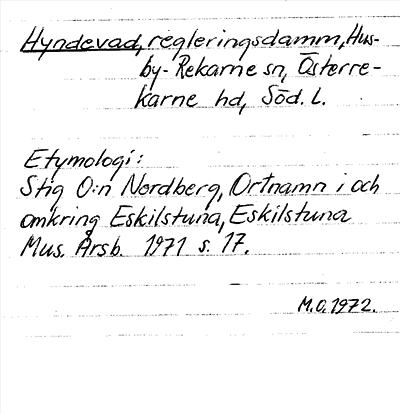 Hyndevad, regleringsdamm, Hus-
by-Rekarne sn, Österre-
karne hd, Söd. L.
Etymologi:
Stig O:n Nordberg, Ortnamn i och
omkring Eskilstuna, Eskilstuna
Mus. Årsb. 1971 s. 17.
M.O. 1972.